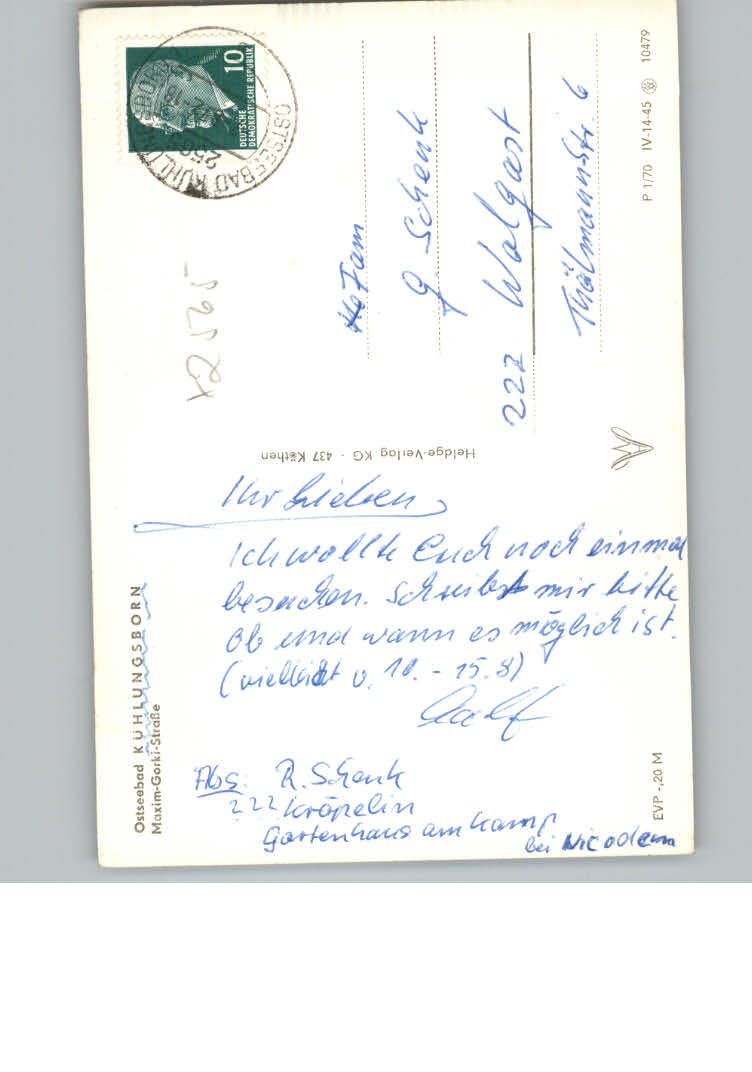 Ostseebad KÜHLUNGSBORN
Maxim-Gorki-Straße
Ihr Lieben
Ich wollte Euch noch einmal
besuchen. Schreibt mir bitte
ob und wann es möglich ist.
(vielleicht v. 10. - 15.8)
Ralf
Abs. R. Schenk
222 Kröpelin
Gartenhaus am Kamp
bei Nicodem
EVP -,20 M
Heldge-Verlag KG · 437 Köthen
DEUTSCHE
DEMOKRATISCHE REPUBLIK
10
OSTSEEBAD KÜHLUNGSBORN
Fam
G Schenk
222 Wolgast
Thälmannstr. 6
P 1/70 IV-14-45 10479